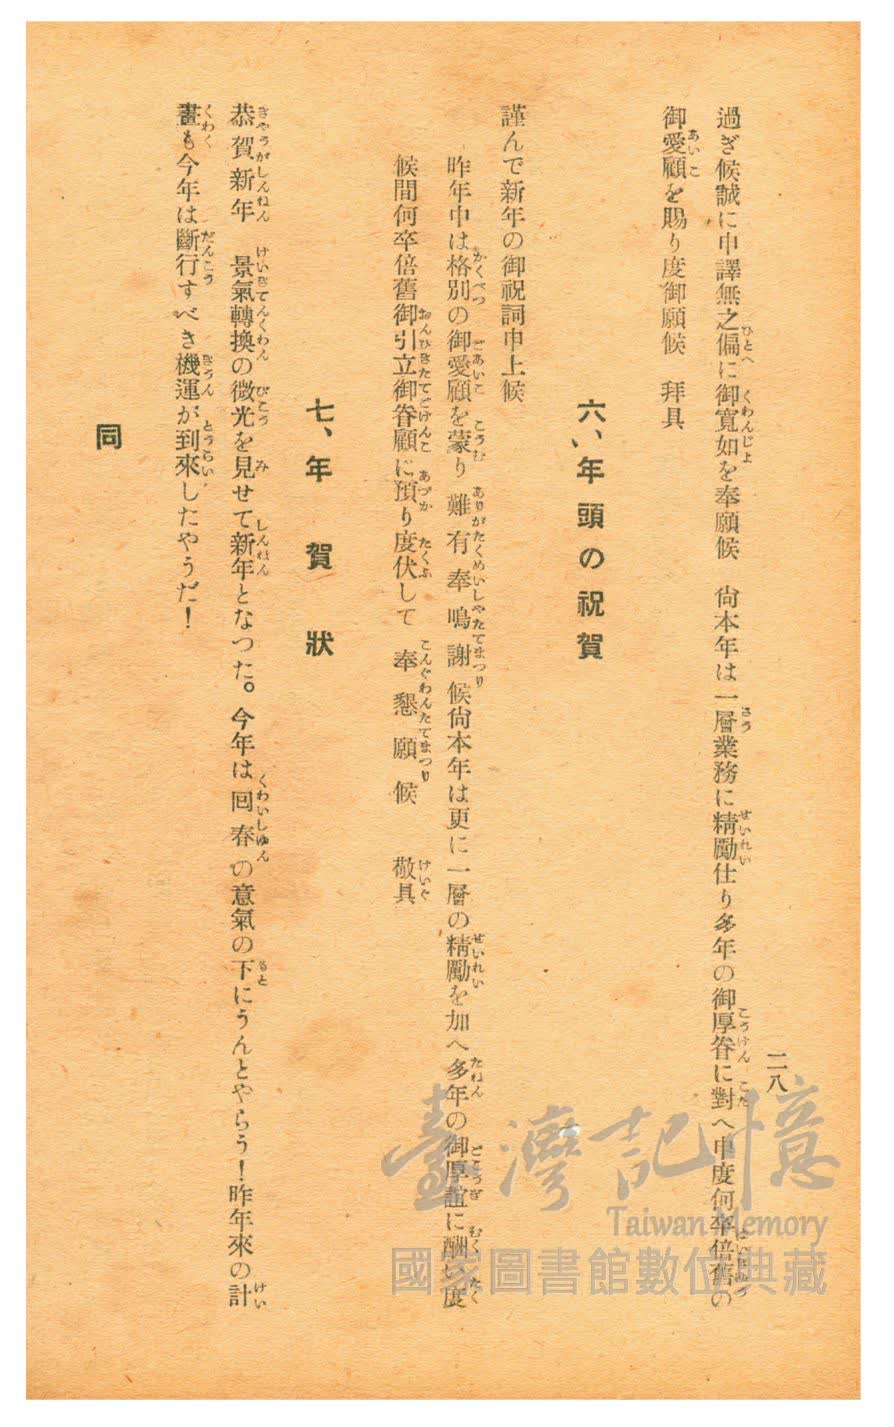 二八
過ぎ候誠に申譯無之偏に御寛如を奉願候　尙本年は一層業務に精勵仕り多年の御厚眷に對へ申度何卒倍舊の
御愛顧を賜り度御願候　拜具
六、年頭の祝賀
謹んで新年の御祝詞申上候
昨年中は格別の御愛顧を蒙り難有奉鳴謝候尙本年は更に一層の精勵を加へ多年の御厚誼に酬い度
候間何卒倍舊御引立御眷顧に預り度伏して奉懇願候　敬具
七、年賀狀
恭賀新年　景氣轉換の微光を見せて新年となつた。今年は囘春の意氣の下にうんとやらう！昨年來の計
畫も今年は斷行すべき機運が到來したやうだ！
同
臺灣記憶
Taiwan Memory
國家圖書館數位典藏